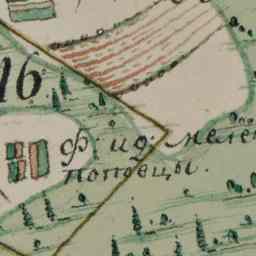 16
ф: ид: меле
поповцы.